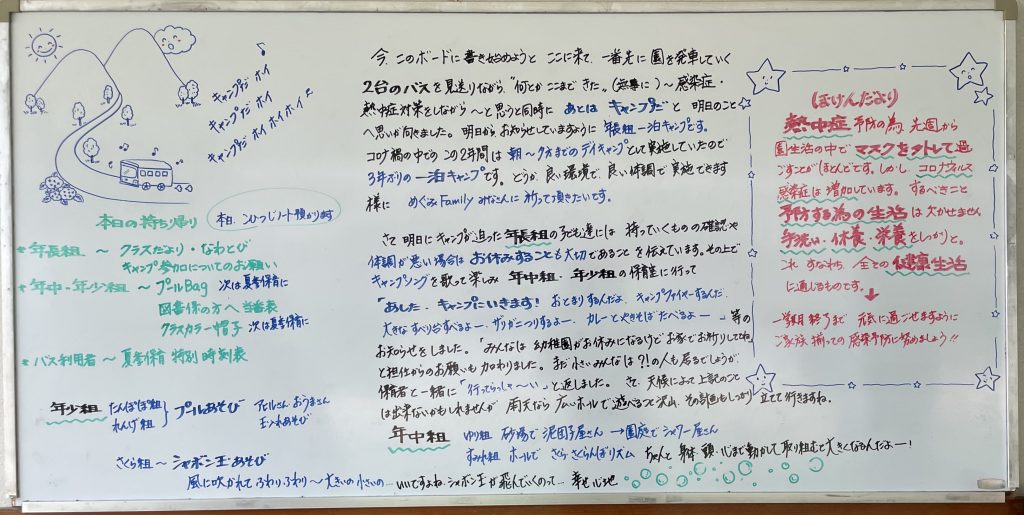 キャンプだ ホイ
キャンプだ ホイ
キャンプだ ホイ ホイ ホイ
本日の持ち帰り
本日、こひつじノート預かります
年長組 〜 クラスだより・なわとび
キャンプ参加についてのお願い
年中・年少組 〜 プールBag 次は夏季保育に
図書係の方へ当番表
クラスカラー帽子 次は夏季保育に
バス利用者 〜 夏季保育 特別時刻表
年少組 たんぽぽ組
れんげ組
プールあそび
アヒルさん おうまさん
玉入れあそび
さくら組 〜 シャボン玉あそび
風に吹かれて ふわりふわり〜 大きいの 小さいの… いいですよね シャボン玉が飛んでいくのって… 幸せ心地
今、このボードに書き始めようと ここに来て、一番先に園を発車していく
2台のバスを見送りながら "何とか ここまで きた。(無事に)〜感染症・
熱中症対策をしながら〜と思うと同時に あとは キャンプだ と 明日のこと
へ思いが向きました。明日から お知らせしていますように 年長組一泊キャンプです。
コロナ禍の中での この2年間は 朝〜夕方までのデイキャンプとして実施していたので
3年ぶりの 一泊キャンプです。どうか、良い環境で、良い体調で 実施できます
様に めぐみFamily みなさんに 祈って頂きたいです。
さて 明日に キャンプが迫った 年長組の子ども達には 持っていくものの確認や
体調が悪い場合は お休みすることも大切であることを伝えています。その上で
キャンプソングを歌って楽しみ 年中組・年少組の保育室に行って
「あした、キャンプにいきます! おとまりするんだよ、キャンプファイヤーするんだ、
大きな すべり台すべるよー、ザリガニつりするよー、カレーとやきそばたべるよー」等の
お知らせをしました。「みんなは 幼稚園がお休みになるけどお家でお祈りしててね」
と担任からのお願いも加わりました。まだ小さいみんなは?!の人も居るでしょうが、
保育者と一緒に「行ってらっしゃ〜い」と返しました。さて、天候によって上記のこと
は出来ないかもしれませんが 雨天なら 広いホールで遊べること沢山、その計画もしっかり立てて行きますね。
年中組 ゆり組 砂場で 泥団子屋さん →園庭で シャワー屋さん
すみれ組 ホールで さら さくらんぼリズム ちゃんと 身体・頭・心まで動かして 取り組むと大きくなるんだよー!
(ほけんだより)
熱中症 予防の為、先週から
園生活の中で マスクを外して過
ごすことがほとんどです。しかし、コロナウィルス
感染症は 増加しています。するべきこと
予防する為の生活は 欠かせません
手洗い・休養・栄養をしっかりと。
これ すなわち、全ての 健康生活
に通じるものです。
一学期終了まで 元気に過ごせますように
ご家族揃っての感染予防に努めましょう!!